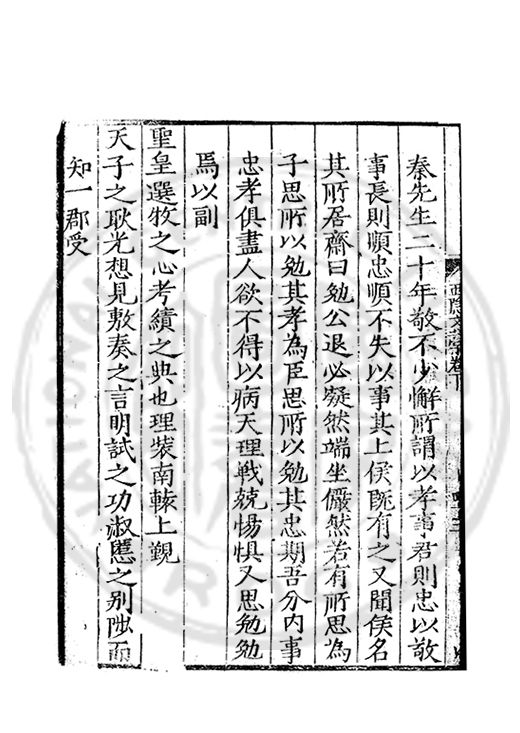 秦先生二十年敬不少懈所謂以孝事君則忠以敬
事長則順忠順不失以事其上侯旣有之又聞侯名
其所居齋曰勉公退必凝然端坐儼然若有所思為
子思所以勉其孝為臣思所以勉其忠期吾分內事
忠孝俱盡人欲不得以病天理戰兢惕惧又思勉勉
焉以副
聖皇選牧之心考績之典也理裝南轅上覲
天子之耿光想見敷奏之言明試之功淑慝之别陟而
知一郡受
卷下